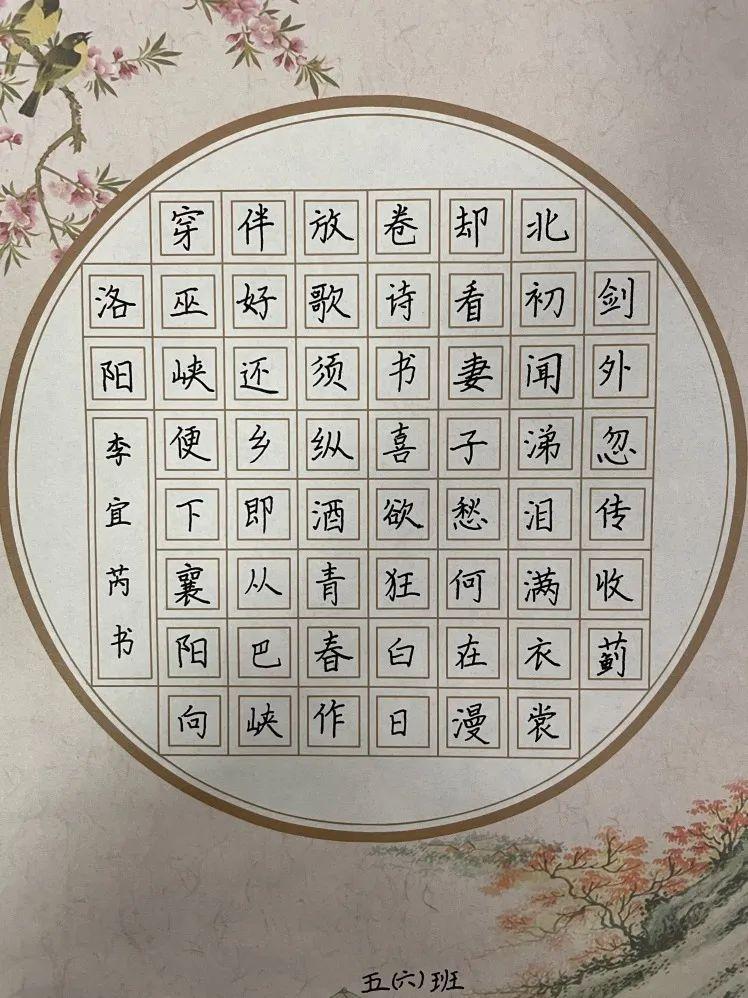 剑外忽传收蓟
北初闻涕泪满衣裳
却看妻子愁何在漫
卷诗书喜欲狂白日
放歌须纵酒青春作
伴好还乡即从巴峡
穿巫峡便下襄阳向
洛阳
李宜芮书
五(六)班